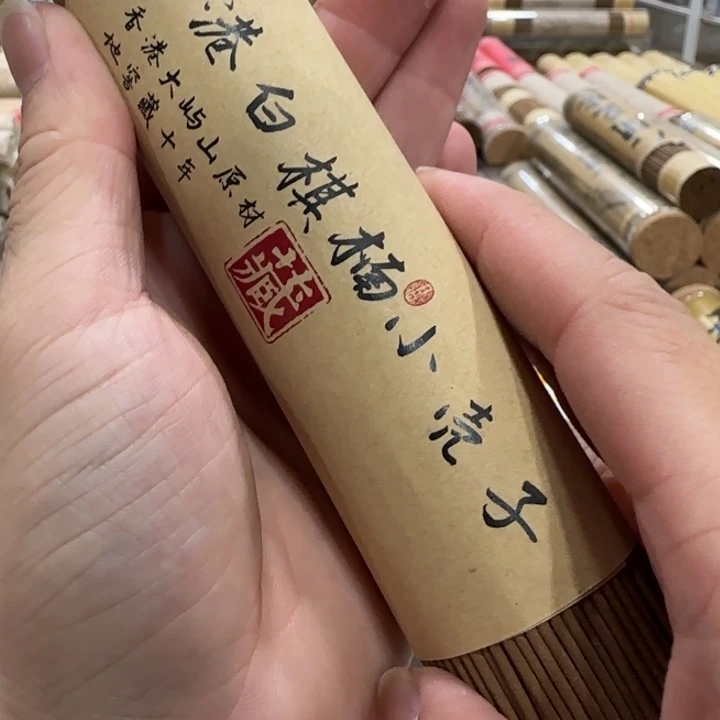 港白棋楠小壳子
香港大屿山原材
地窖藏十年
藏